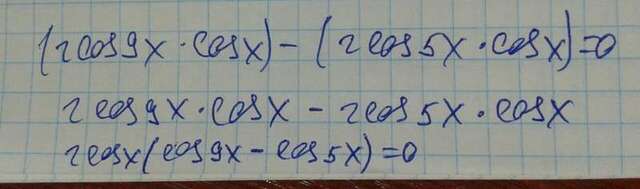 (2cos9x·cosx)-(2cos5x·cosx)=0
2cos9x·cosx-2cos5x·cosx
2cosx(cos9x-cos5x)=0